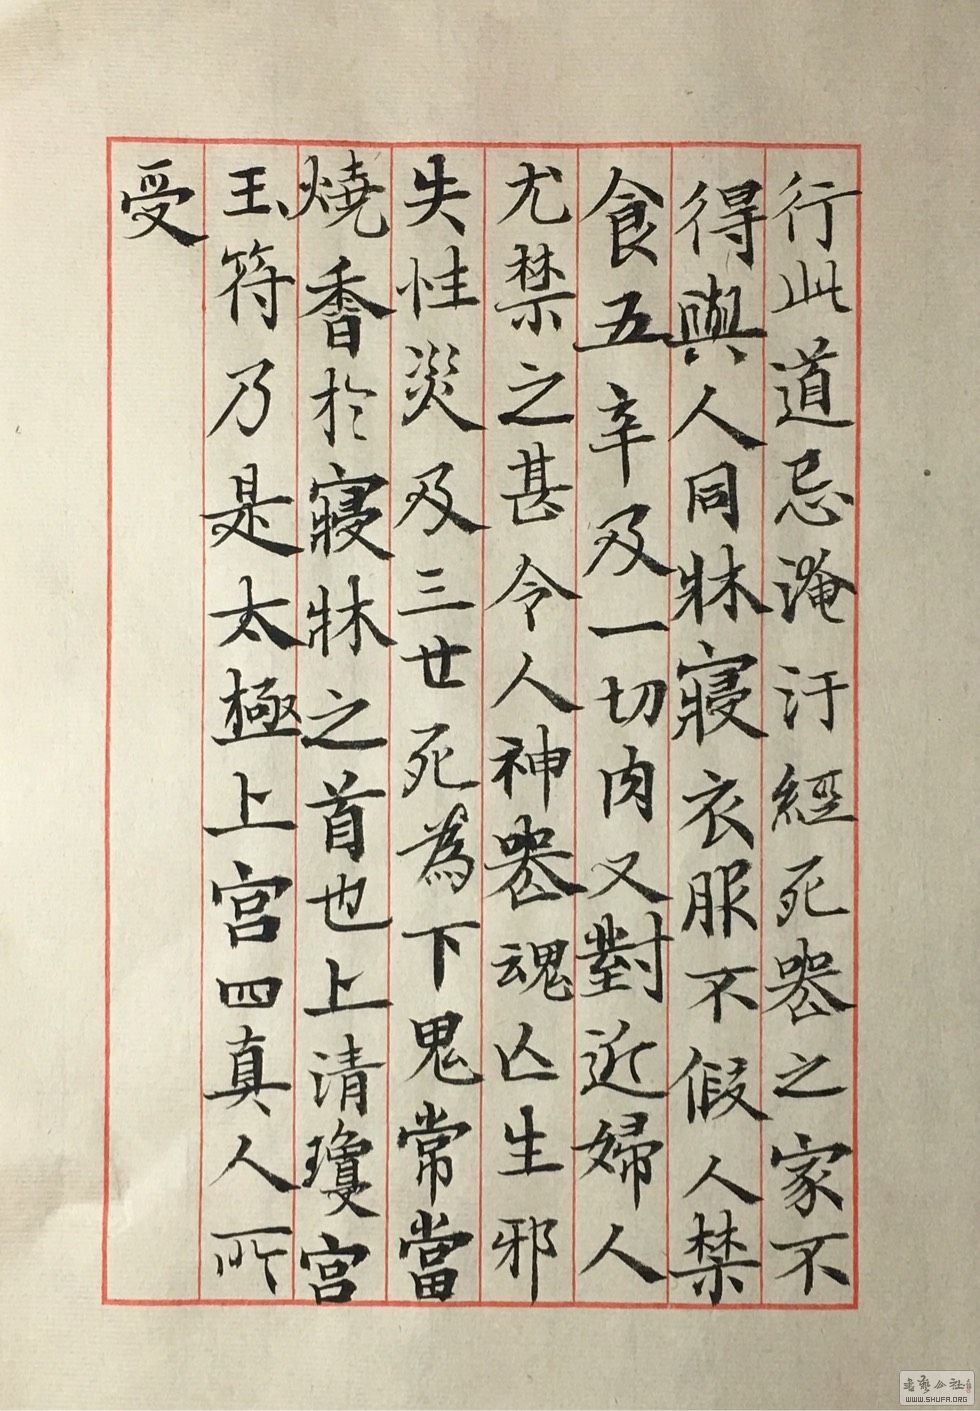 行此道忌淹汙經死喪之家不
得與人同牀寢衣服不假人禁
食五辛及一切肉又對近婦人
尤禁之甚令人神喪魂亡生邪
失性災及三世死為下鬼常當
燒香於寢牀之首也上清瓊宮
玉符乃是太極上宮四真人所
受
WWW.SHUFA.ORG